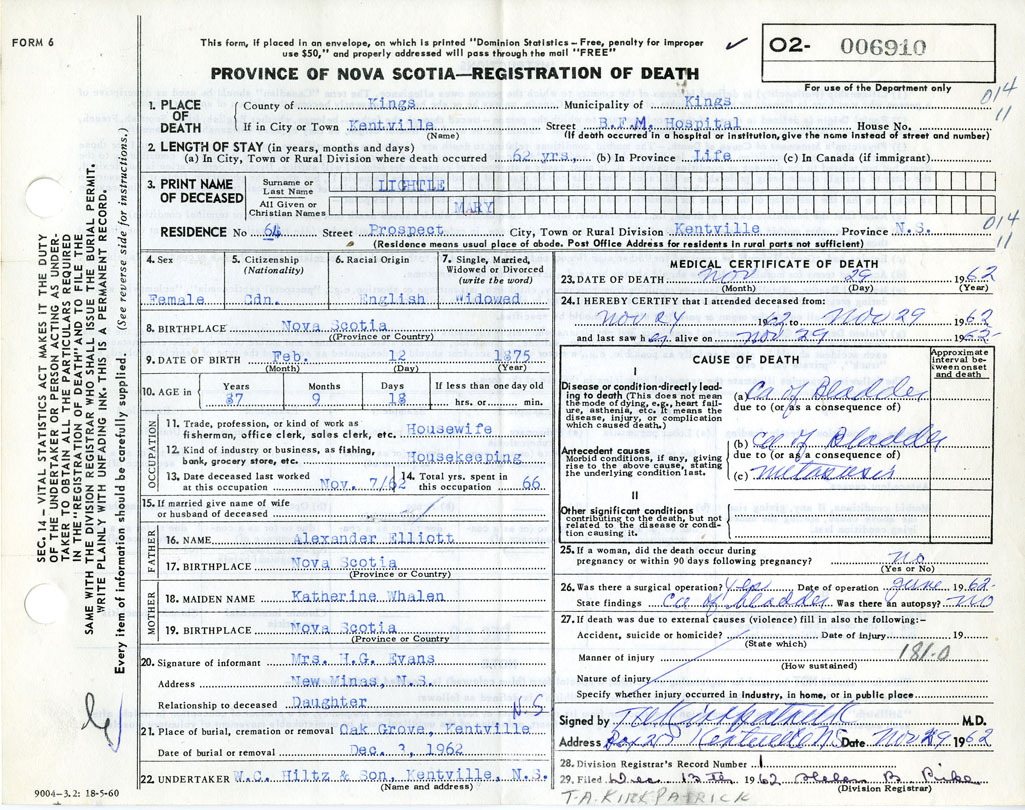 FORM 6
This form, if placed in an envelope, on which is printed "Dominion Statistics – Free, penalty for improper
use $50," and properly addressed will pass through the mail "FREE"
O2- 006910
PROVINCE OF NOVA SCOTIA—REGISTRATION OF DEATH
For use of the Department only
1. PLACE OF DEATH County of Kings Municipality of Kings 014
If in City or Town Kentville Street B.F.M. Hospital House No. 11
(Name) (If death occurred in a hospital or institution, give the name instead of street and number)
2. LENGTH OF STAY (in years, months and days)
(a) In City, Town or Rural Division where death occurred 62 yrs., (b) In Province Life (c) In Canada (if immigrant)
3. PRINT NAME OF DECEASED Surname or Last Name LIGHTLE
All Given or Christian Names MARY
RESIDENCE No 64 Street Prospect City, Town or Rural Division Kentville Province N.S. 014
(Residence means usual place of abode. Post Office Address for residents in rural parts not sufficient) 11
SEC. 14 – VITAL STATISTICS ACT MAKES IT THE DUTY
OF THE UNDERTAKER OR PERSON ACTING AS UNDER-
TAKER TO OBTAIN ALL THE PARTICULARS REQUIRED
IN THE "REGISTRATION OF DEATH" AND TO FILE THE
SAME WITH THE DIVISION REGISTRAR WHO SHALL ISSUE THE BURIAL PERMIT.
WRITE PLAINLY WITH UNFADING INK. THIS IS A PERMANENT RECORD.
Every item of information should be carefully supplied. (See reverse side for instructions.)
4. Sex 5. Citizenship (Nationality) 6. Racial Origin 7. Single, Married, Widowed or Divorced (write the word)
Female Cdn. English Widowed
8. BIRTHPLACE Nova Scotia
((Province or Country)
9. DATE OF BIRTH Feb. 12 1875
(Month) (Day) (Year)
10. AGE in Years Months Days If less than one day old
87 9 18 hrs. or min.
OCCUPATION
11. Trade, profession, or kind of work as
fisherman, office clerk, sales clerk, etc. Housewife
12. Kind of industry or business, as fishing,
bank, grocery store, etc. Housekeeping
13. Date deceased last worked
at this occupation Nov. 7/62
14. Total yrs. spent in
this occupation 66
15. If married give name of wife
or husband of deceased
FATHER
16. NAME Alexander Elliott
17. BIRTHPLACE Nova Scotia
(Province or Country)
MOTHER
18. MAIDEN NAME Katherine Whalen
19. BIRTHPLACE Nova Scotia
(Province or Country
20. Signature of informant Mrs. H.G. Evans
Address New Minas, N.S.
Relationship to deceased Daughter
N.S
21. Place of burial, cremation or removal Oak Grove, Kentville
Date of burial or removal Dec. 3, 1962
22. UNDERTAKER W.C. Hiltz & Son, Kentville, N.S.
(Name and address)
9004–3.2: 18-5-60
MEDICAL CERTIFICATE OF DEATH
23. DATE OF DEATH Nov 29 1962
(Month) (Day) (Year)
24. I HEREBY CERTIFY that I attended deceased from:
Nov 24 1962 to Nov 29 1962
and last saw her alive on Nov 29 1962
CAUSE OF DEATH
Approximate interval be-tween onset and death
I
Disease or condition directly lead-
ing to death (This does not mean
the mode of dying, e.g., heart fail-
ure, asthenia, etc. It means the
disease, injury, or complication
which caused death.)
(a) Ca of Bladder
due to (or as a consequence of)
Antecedent causes
Morbid conditions, if any, giving
rise to the above cause, stating
the underlying condition last.
(b) Ca of Bladder
due to (or as a consequence of)
(c) metastasis
II
Other significant conditions
contributing to the death, but not
related to the disease or condi-
tion causing it.
25. If a woman, did the death occur during
pregnancy or within 90 days following pregnancy? no
(Yes or No)
26. Was there a surgical operation? Yes Date of operation June 1962
State findings Ca of bladder Was there an autopsy? no
27. If death was due to external causes (violence) fill in also the following:-
Accident, suicide or homicide? Date of injury 19
(State which)
Manner of injury 181.0
(How sustained)
Nature of injury
Specify whether injury occurred in industry, in home, or in public place
Signed by T A Kirkpatrick M.D.
Address Box 25 Kentville NS Date Nov 29 1962
28. Division Registrar's Record Number 1
29. Filed Dec 13th 1962 Helen B. Pirke
(Division Registrar)
T.A. KIRKPATRICK